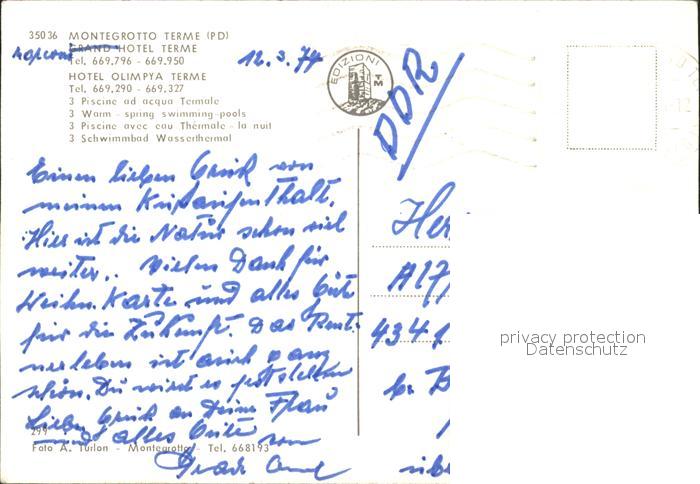 35036 MONTEGROTTO TERME (PD)
GRAND HOTEL TERME
Tel. 669.796 - 669.950
HOTEL OLIMPYA TERME
Tel. 669.290 - 669.327
3 Piscine ad acqua Termale
3 Warm - spring swimming-pools
3 Piscine avec eau Thèrmale - la nuit
3 Schwimmbad Wasserthermal
12.3.74
EDIZIONI
TM
DDR
Einen lieben Gruß von
meinen
Hier ist die Natur schon viel
weiter.. Vielen Dank für
Weihn. Karte und alles Gute
für die Zukunft. Das Rent-
nerleben ist auch ganz
schön. Du wirst es feststellen
Lieben Gruß an Deine Frau
und alles Gute von
Her
A17
4341
b. B
299
Foto A. Turlon - Montegrotto - Tel. 668193
privacy protection
Datenschutz